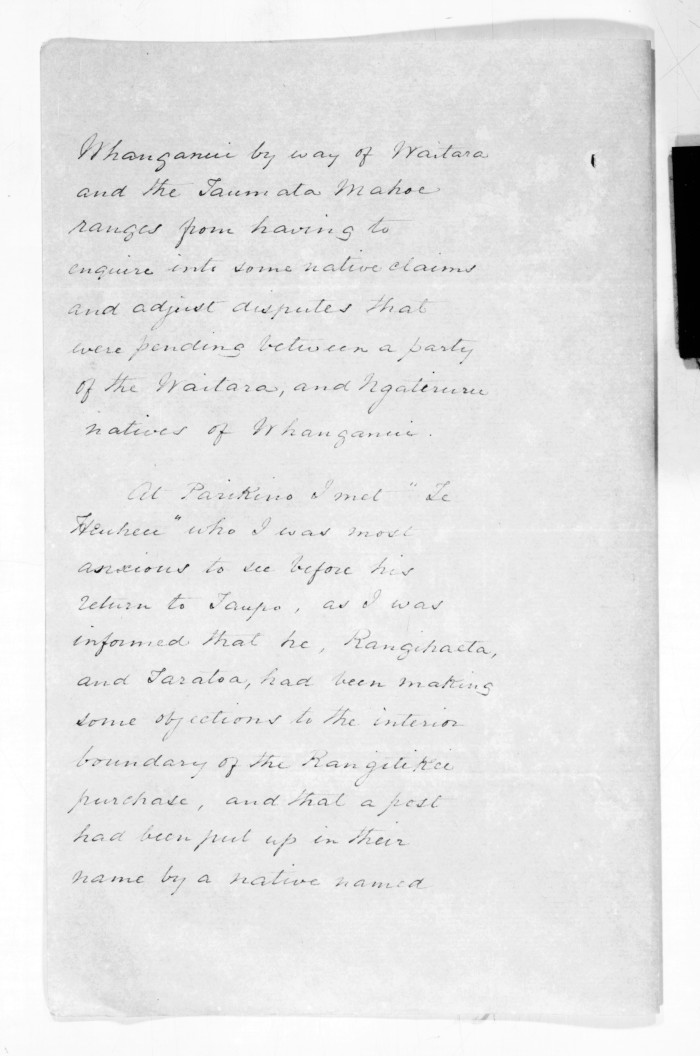 Whanganui by way of Waitara
and the Taumata Mahoe
ranges from having to
enquire into some native claims
and adjust disputes that
were pending between a party
of the Waitara, and Ngateruru
natives of Whanganui.
At Parikino I met "Te
Heuheu" who I was most
anxious to see before his
return to Taupo, as I was
informed that he, Rangihaeta,
and Taratoa, had been making
some objections to the interior
boundary of the Rangitikei
purchase, and that a post
had been put up in their
name by a native named